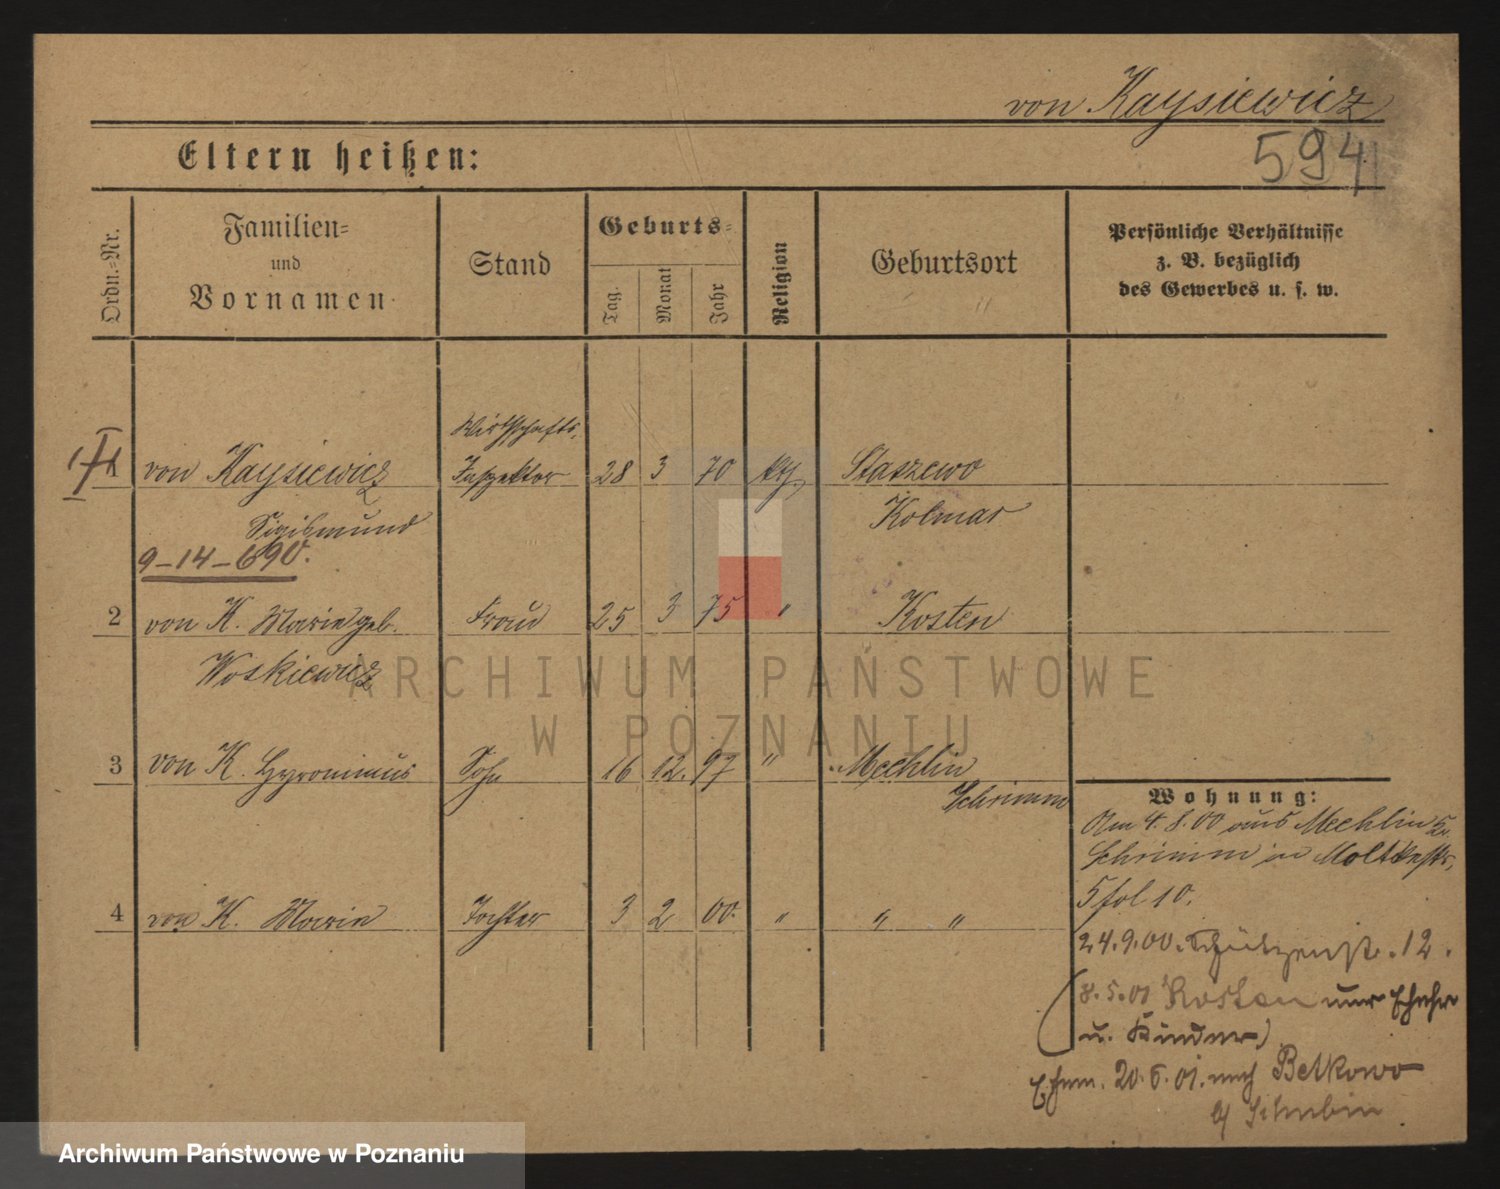 von Kaysiewicz
594
Eltern heißen:
Ordn.-Nr.
Familien-
und
Vornamen.
Stand
Geburts-
Tag.
Monat
Jahr
Religion
Geburtsort
Persönliche Verhältnisse
z. B. bezüglich
des Gewerbes u. s. w.
Wirthschafts-
1 von Kaysiewicz Inspektor 28 3 70 kth. Staszewo
Sigismund Kolmar
9-14-690.
2 von K. Marie geb. Frau 25 3 75 " Kosten
Woskiewicz
3 von K. Hyronimus Sohn 16 12. 97 " Mechlin
Schrimm
4 von K. Marie Tochter 3 2 00. " " "
Wohnung:
Am 4.8.00 aus Mechlin Kr.
Schrimm in Moltkestr.
5 fol 10.
24.9.00. Schützenstr. 12.
(8.5.01 Kosten nur Ehefr
u. Kinder)
Ehem. 20.6.01. nach Betkowo
b/ Schubin
ARCHIWUM PAŃSTWOWE
W POZNANIU
Archiwum Państwowe w Poznaniu